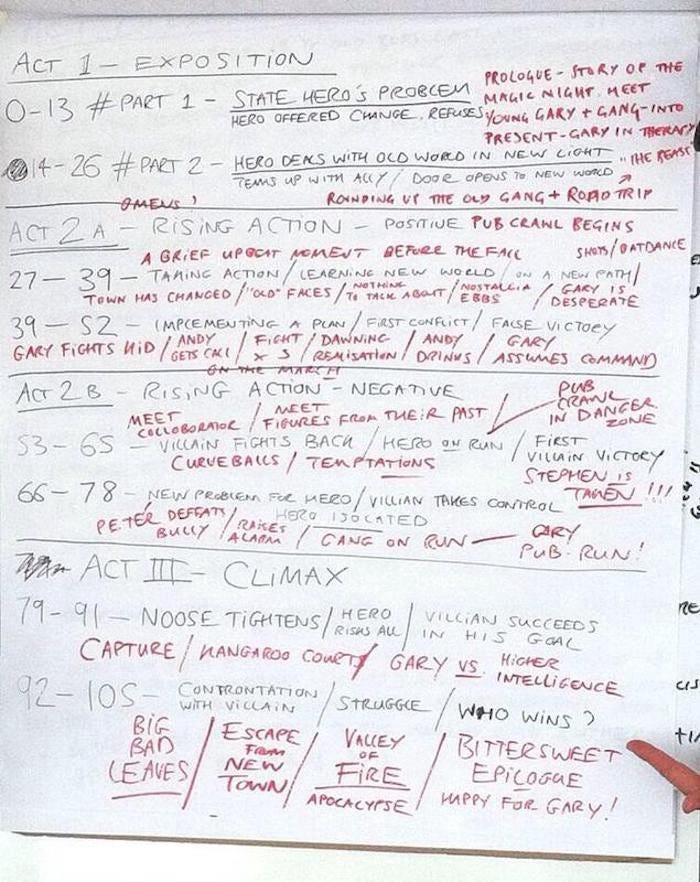 ACT 1 — EXPOSITION
0-13 # PART 1 - STATE HERO'S PROBLEM
HERO OFFERED CHANGE, REFUSES
PROLOGUE - STORY OF THE
MAGIC NIGHT. MEET
YOUNG GARY + GANG - INTO
PRESENT - GARY IN THERAPY
14-26 # PART 2 - HERO DEALS WITH OLD WORLD IN NEW LIGHT
TEAMS UP WITH ALLY / DOOR OPENS TO NEW WORLD
ROUNDING UP THE OLD GANG + ROAD TRIP
OMENS?
ACT 2A - RISING ACTION - POSITIVE PUB CRAWL BEGINS
A BRIEF UPBEAT MOMENT BEFORE THE FALL
SHOTS/
27-39 - TAKING ACTION / LEARNING NEW WORLD / ON A NEW PATH /
TOWN HAS CHANGED / "OLD" FACES / NOTHING TO TALK ABOUT / NOSTALGIA EBBS / GARY IS DESPERATE
39-52 - IMPLEMENTING A PLAN / FIRST CONFLICT / FALSE VICTORY
GARY FIGHTS KID / ANDY GETS CALL / FIGHT X 5 / DAWNING REALISATION / ANDY DRINKS / GARY ASSUMES COMMAND
ON THE MARCH
ACT 2B - RISING ACTION - NEGATIVE
PUB
CRAWL
IN DANGER
ZONE
MEET COLLOBORATOR / MEET FIGURES FROM THEIR PAST
53-65 - VILLAIN FIGHTS BACK / HERO ON RUN / FIRST VILLAIN VICTORY
CURVEBALLS / TEMPTATIONS
STEPHEN IS
TAKEN!!!
66-78 - NEW PROBLEM FOR HERO / VILLIAN TAKES CONTROL
HERO ISOLATED
PETER DEFEATS BULLY / RAISES ALARM / GANG ON RUN — GARY PUB-RUN!
ACT III - CLIMAX
79-91 - NOOSE TIGHTENS / HERO RISKS ALL / VILLIAN SUCCEEDS IN HIS GOAL
CAPTURE / KANGAROO COURT / GARY VS. HIGHER INTELLIGENCE
92-105 - CONFRONTATION WITH VILLAIN / STRUGGLE / WHO WINS?
BIG
BAD
LEAVES /
ESCAPE
FROM
NEW
TOWN /
VALLEY
OF
FIRE
APOCALYPSE /
BITTERSWEET
EPILOGUE
HAPPY FOR GARY!